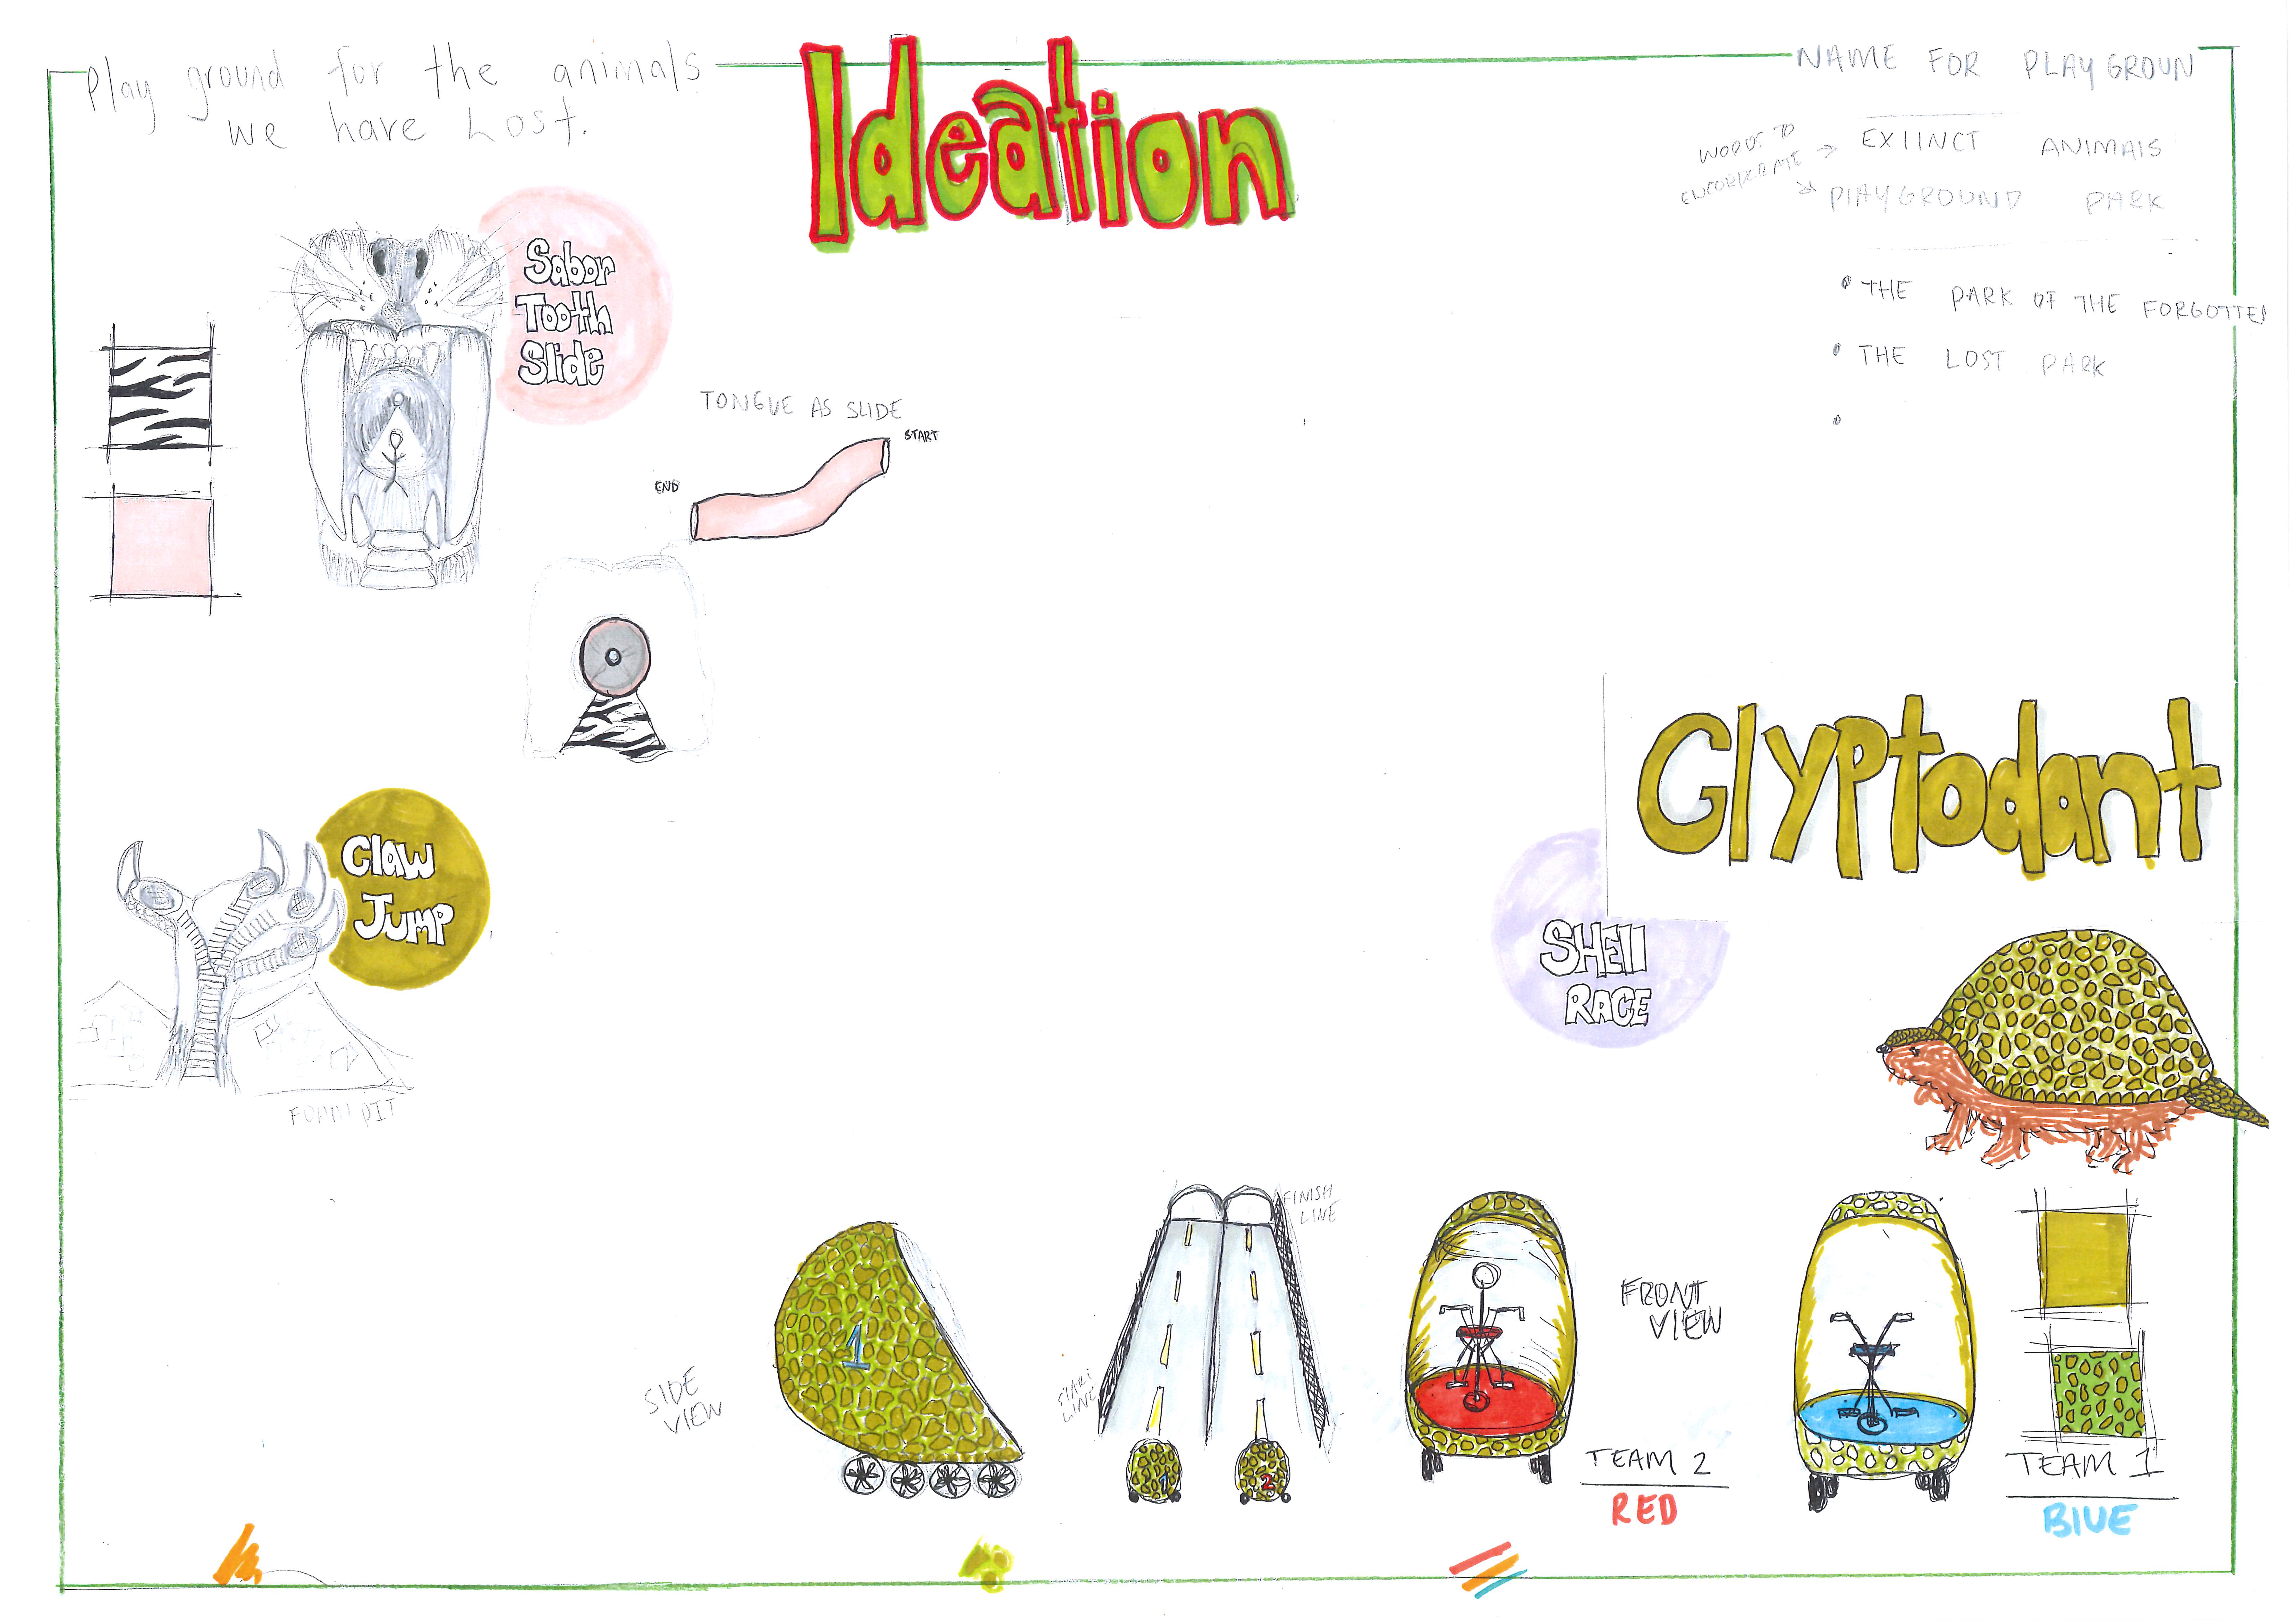 Play ground for the animals
we have Lost.
Ideation
NAME FOR PLAY GROUN
WORDS TO
EXIINCT ANIMAIS
PlAYGROUND PARK
THE PARK OF THE FORGOTTEN
THE LOST PARK
Sabor
Tooth
Slide
TONGUE AS SLIDE
START
END
Claw
Jump
FOAM PIT
Glyptodant
SHEll
RACE
SIDE
VIEW
1
FINISH
LINE
START
LINE
1
2
FRONT
VIEW
TEAM 2
RED
TEAM 1
BlUE